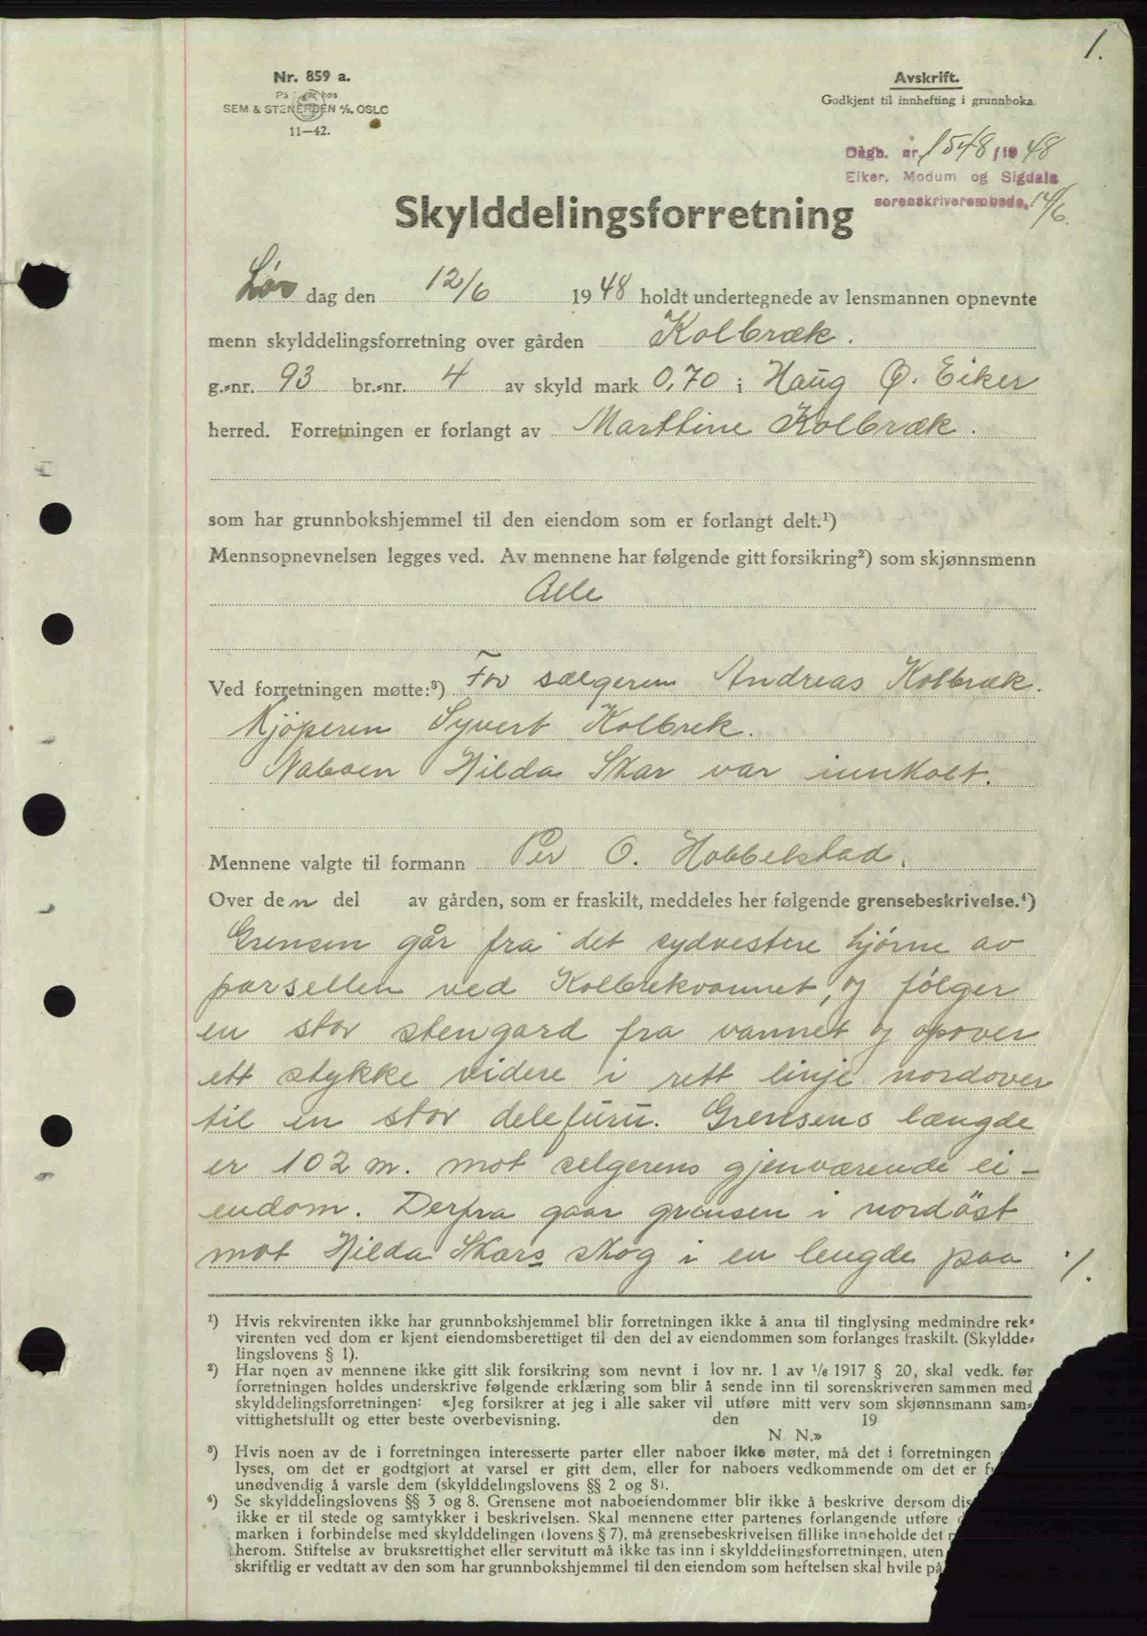 1.
Nr. 859 a.
På hos
SEM & STENERSEN A/S, OSLO
11—42.
Avskrift.
Godkjent til innhefting i grunnboka.
Dagb. nr. 1548/1948
Eiker, Modum og Sigdals
sorenskriverembede, 14/6.
Skylddelingsforretning
Lør dag den 12/6 1948 holdt undertegnede av lensmannen opnevnte
menn skylddelingsforretning over gården Kolbræk.
g.-nr. 93 br.-nr. 4 av skyld mark 0,70 i Haug Ø. Eiker
herred. Forretningen er forlangt av Marttine Kolbræk.
som har grunnbokshjemmel til den eiendom som er forlangt delt.¹)
Mennsopnevnelsen legges ved. Av mennene har følgende gitt forsikring²) som skjønnsmenn
Alle
Ved forretningen møtte:³) For sælgeren Andreas Kolbræk.
Kjöperen Syvert Kolbrek.
Naboen Hilda Skar var innkalt.
Mennene valgte til formann Per O. Hobbelstad.
Over den del av gården, som er fraskilt, meddeles her følgende grensebeskrivelse.⁴)
Grensen går fra det sydvestere hjörne av
parsellen ved Kolbrekvannet, og fölger
en stor stengard fra vannet og opover
ett stykke videre i rett linje nordover
til en stor delefuru. Grensens længde
er 102 m. mot selgerens gjenværende ei-
endom. Derfra gaar grensen i nordöst
mot Hilda Skars skog i en lengde paa ./.
¹) Hvis rekvirenten ikke har grunnbokshjemmel blir forretningen ikke å anta til tinglysing medmindre rek-
virenten ved dom er kjent eiendomsberettiget til den del av eiendommen som forlanges fraskilt. (Skyldde-
lingslovens § 1).
²) Har noen av mennene ikke gitt slik forsikring som nevnt i lov nr. 1 av 1/6 1917 § 20, skal vedk. før
forretningen holdes underskrive følgende erklæring som blir å sende inn til sorenskriveren sammen med
skylddelingsforretningen: «Jeg forsikrer at jeg i alle saker vil utføre mitt verv som skjønnsmann sam-
vittighetsfullt og etter beste overbevisning. den 19
N. N.»
³) Hvis noen av de i forretningen interesserte parter eller naboer ikke møter, må det i forretningen
lyses, om det er godtgjort at varsel er gitt dem, eller for naboers vedkommende om det er
unødvendig å varsle dem (skylddelingslovens §§ 2 og 8).
⁴) Se skylddelingslovens §§ 3 og 8. Grensene mot naboeiendommer blir ikke å beskrive dersom
ikke er til stede og samtykker i beskrivelsen. Skal mennene etter partenes forlangende utføre
marken i forbindelse med skylddelingen (lovens § 7), må grensebeskrivelsen tillike inneholde det
herom. Stiftelse av bruksrettighet eller servitutt må ikke tas inn i skylddelingsforretningen, uten
skriftlig er vedtatt av den som har grunnbokshjemmel til den eiendom som heftelsen skal hvile på